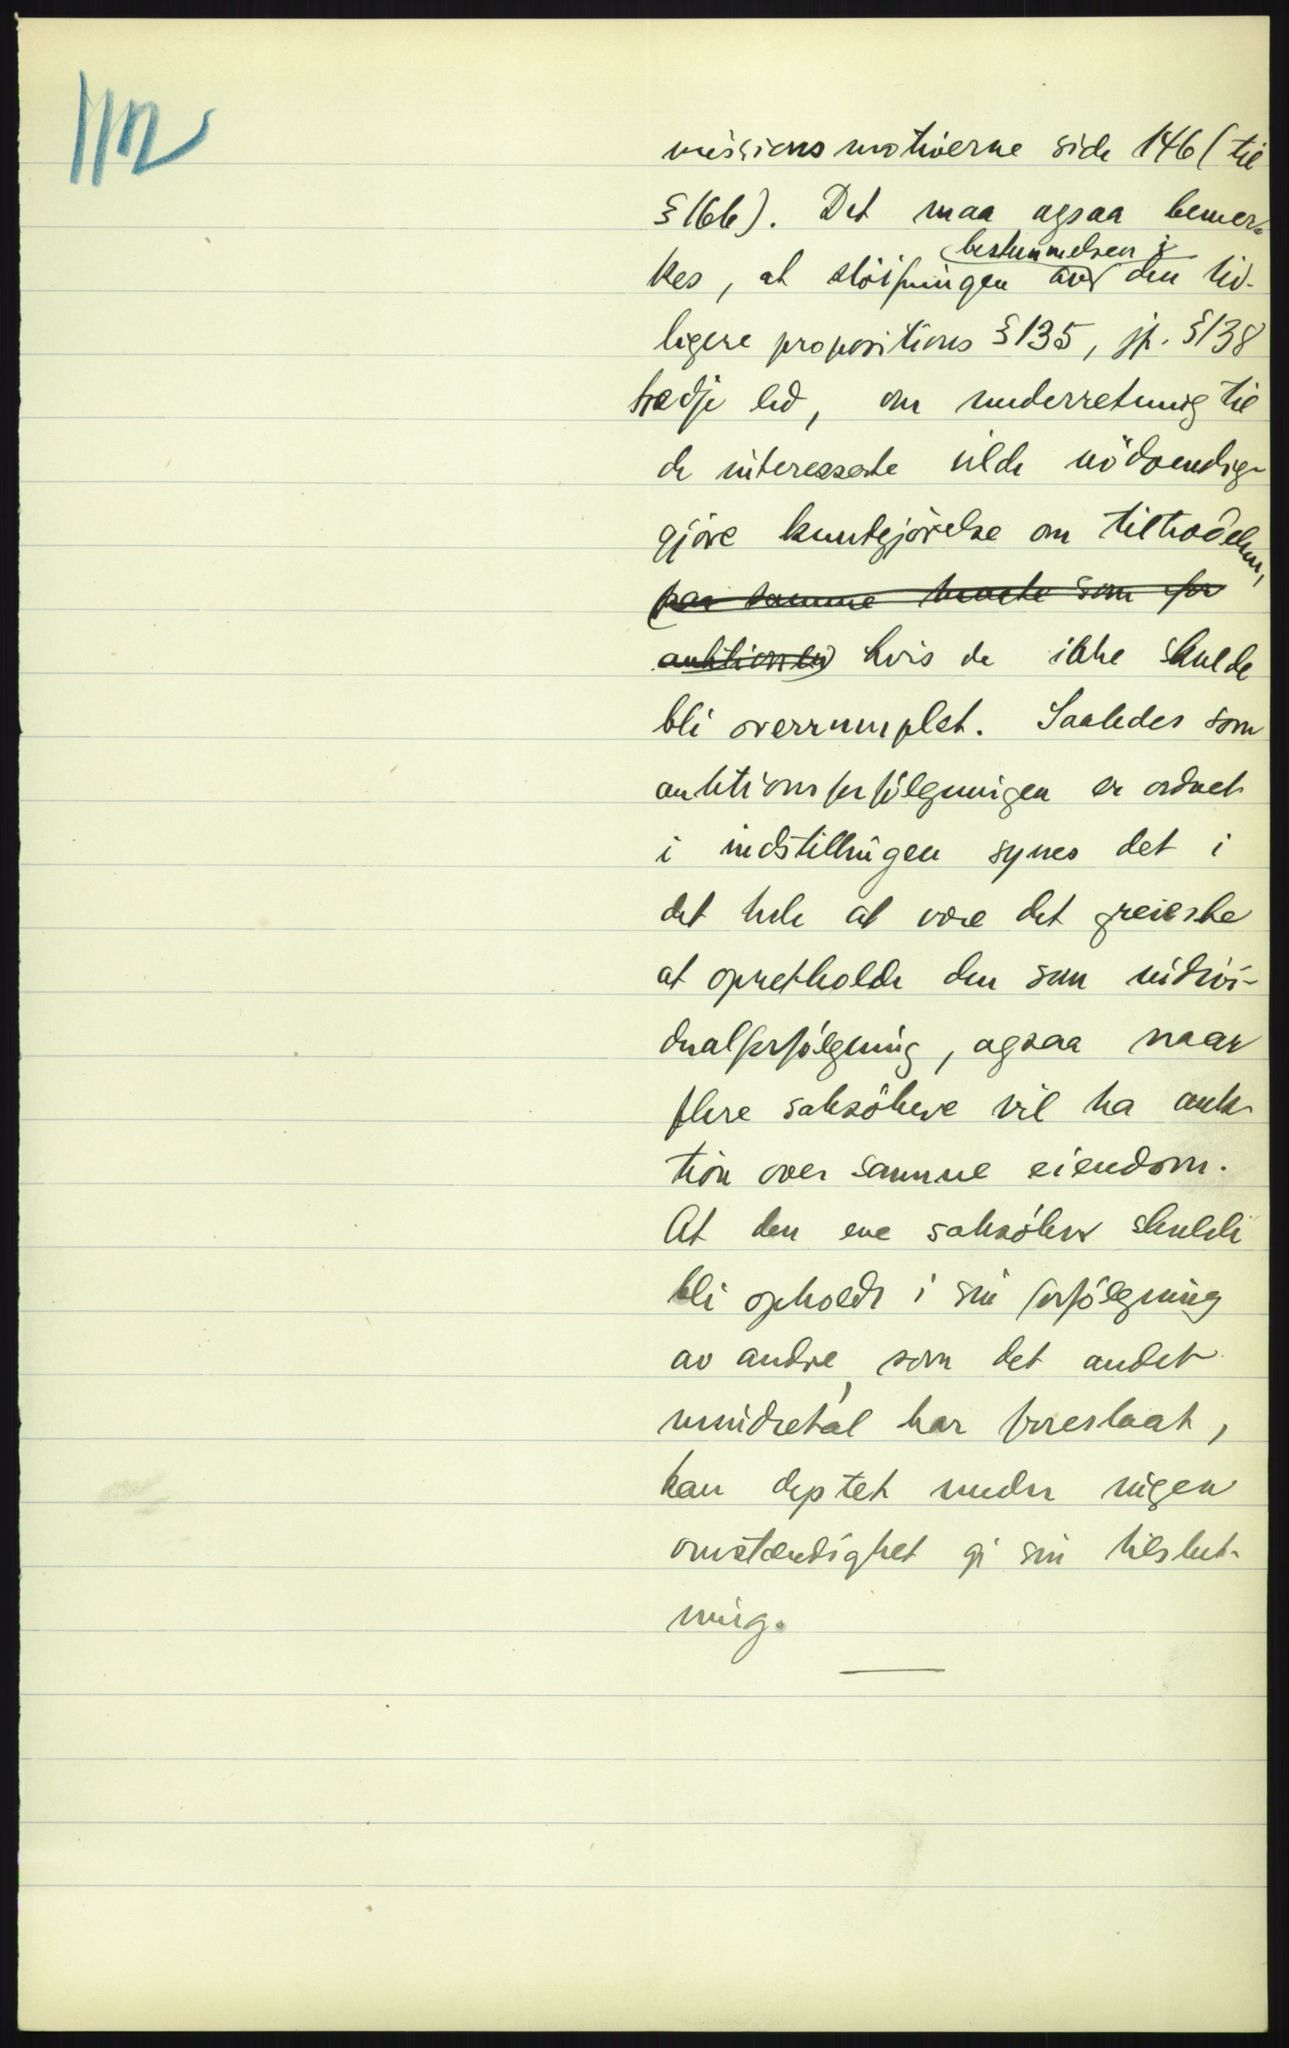 1112
missionsmotiverne side 146 (til
§ 166). Det maa ogsaa bemer-
bestemmelsen i
kes, at sløifningen av den tid-
ligere propositions § 135, jfr. § 138
tredje led, om underretning til
de interesserte vilde nödvendig-
gjöre kundgjörelse om tiltrædelsen,
paa samme maate som for
auktionen hvis de ikke skulde
bli overrumplet. Saaledes som
auktionsforfölgningen er ordnet
i indstillingen synes det i
det hele at være det greieste
at opretholde den som indivi-
dualforfölgning, ogsaa naar
flere saksökere vil ha auk-
tion over samme eiendom.
At den ene saksöker skulde
bli opholdt i sin forfölgning
av andre, som det andet
mindretal har foreslaat,
kan deptet under ingen
omstændighet gi sin tilslut-
ning.